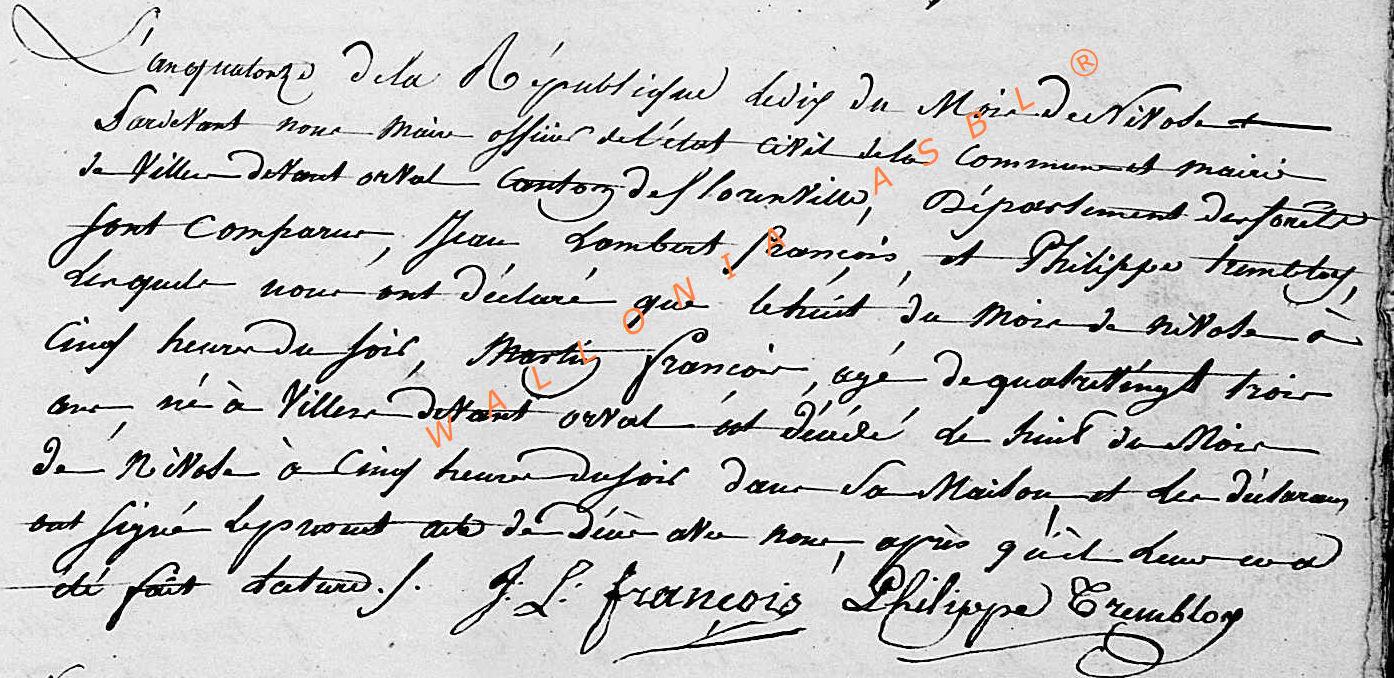 L'an quatorze de la République le dix du Mois de Nivose
Pardevant nous maire officier de l'état Civil de la Commune et mairie
de Villers devant orval Canton de florenville, Département des forêts
sont Comparus, Jean Lambert françois, et Philippe trembloy,
lesquels nous ont déclaré que le huit du Mois de nivose à
Cinq heures du soir, Martin françois, agé de quatre vingt trois
ans né à Villers devant orval est décédé le huit du Mois
de Nivose à Cinq heures du soir dans sa Maison et les déclarans
ont signé le présent acte de décès avec nous, après qu'il leur en a
été fait lecture./. J: L: françois Philippe Trembloy
WALLONIA ASBL ®